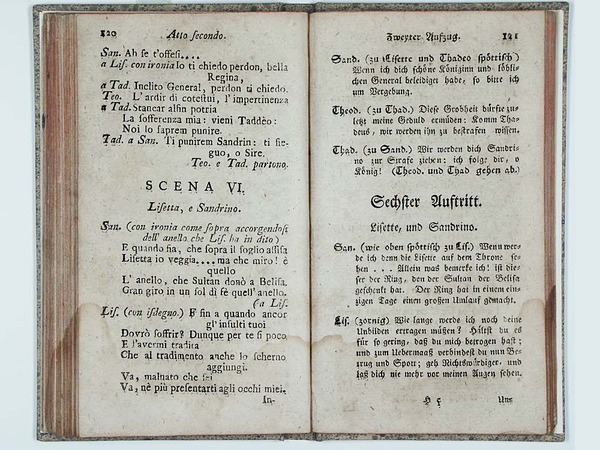 120 Atto secondo.
San. Ah se t'offesi....
a Lis. con ironia Io ti chiedo perdon, bella
Regina,
a Tad. Inclito General, perdon ti chiedo.
Teo. L' ardir di cotestui, l' impertinenza
a Tad. Stancar alfin potria
La sofferenza mia: vieni Taddèo:
Noi lo saprem punire.
Tad. a San. Ti punirem Sandrin: ti sie-
guo, o Sire.
Teo. e Tad. partono.
SCENA VI.
Lisetta, e Sandrino.
San. (con ironia come sopra accorgendosi
dell' anello che Lis. ha in dito)
E quando fia, che sopra il soglio assisa
Lisetta io veggia....ma che miro! è
quello
L' anello, che Sultan donò a Belisa.
Gran giro in un sol dì fè quell' anello.
(a Lis.
Lis. (con isdegno.) E fin a quando ancor
gl' insulti tuoi
Dovrò soffrir? Dunque per te fi poco
E l'avermi tradita
Che al tradimento anche lo scherno
aggiungi.
Va, malnato che sei
Va, nè più presentarti agli occhi miei,
In-
Zweyter Aufzug. 121
Sand. (zu Lisette und Thadeo spöttisch)
Wenn ich dich schöne Königinn und löbli-
chen General beleidiget habe, so bitte ich
um Vergebung.
Theod. (zu Thad.) Diese Grobheit dürfte zu-
letzt meine Geduld ermüden: Komm Tha-
deus, wir werden ihn zu bestrafen wissen.
Thad. (zu Sand.) Wir werden dich Sandri-
no zur Strafe ziehen: ich folge dir, o
König! (Theod. und Thad gehen ab.)
Sechster Auftritt.
Lisette, und Sandrino.
San. (wie oben spöttisch zu Lis.) Wenn wer-
de ich denn die Lisette auf dem Throne se-
hen . . . Allein was bemerke ich! ist die-
ser der Ring, den der Sultan der Belisa
geschenkt hat. Der Ring hat in einem ein-
zigen Tage einen großen Umlauf gemacht.
Lis. (zornig) Wie lange werde ich noch deine
Unbilden ertragen müßen? Hältst du es
für so gering, daß du mich betrogen hast;
und zum Uebermaaß verbindest du nun Be-
trug und Spott; geh Nichtswürdiger, und
laß dich nie mehr vor meinen Augen sehen.
Und